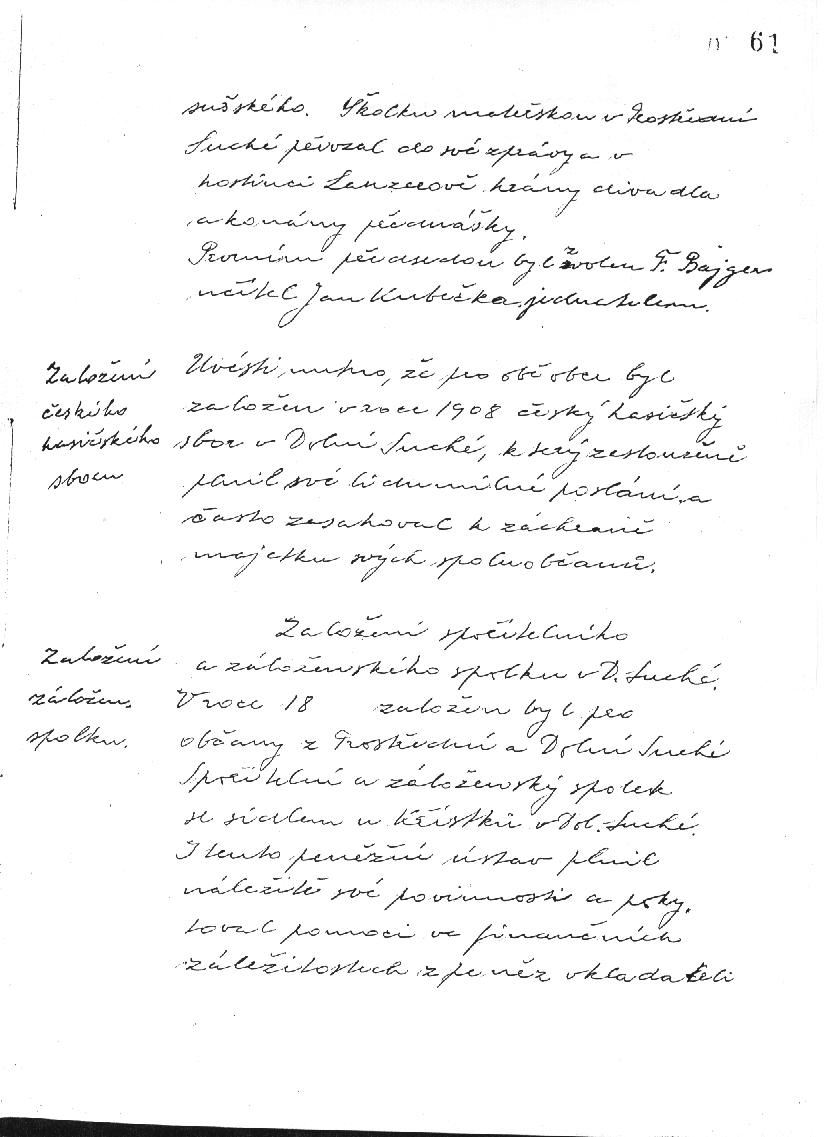 61
sušského. Školku mateřskou v Prostřední
Suché převzal do své zprávy a v
hostinci Lanzerově hrány divadla
a konány přednášky.
Prvním předsedou byl zvolen F. Bajger
učitel Jan Kubečka jednatelem.
Založení
českého
hasičského
sboru
Uvésti nutno, že pro obě obce byl
založen v roce 1908 český hasičský
sbor v Dolní Suché, který zeslouženě
plnil své lidumilné poslání a
často zasahoval k záchraně
majetku svých spoluobčanů.
Založení spořitelního
Založení
záložen.
spolku.
a záloženského spolku v D. Suché.
V roce 18 založen byl pro
občany z Prostřední a Dolní Suché
Spořitelní a záloženský spolek
se sídlem u Křístků v Dol. Suché.
I tento peněžní ústav plnil
náležitě své povinnosti a posky.
toval pomoci ve finančních
záležitostech z peněz vkladateli